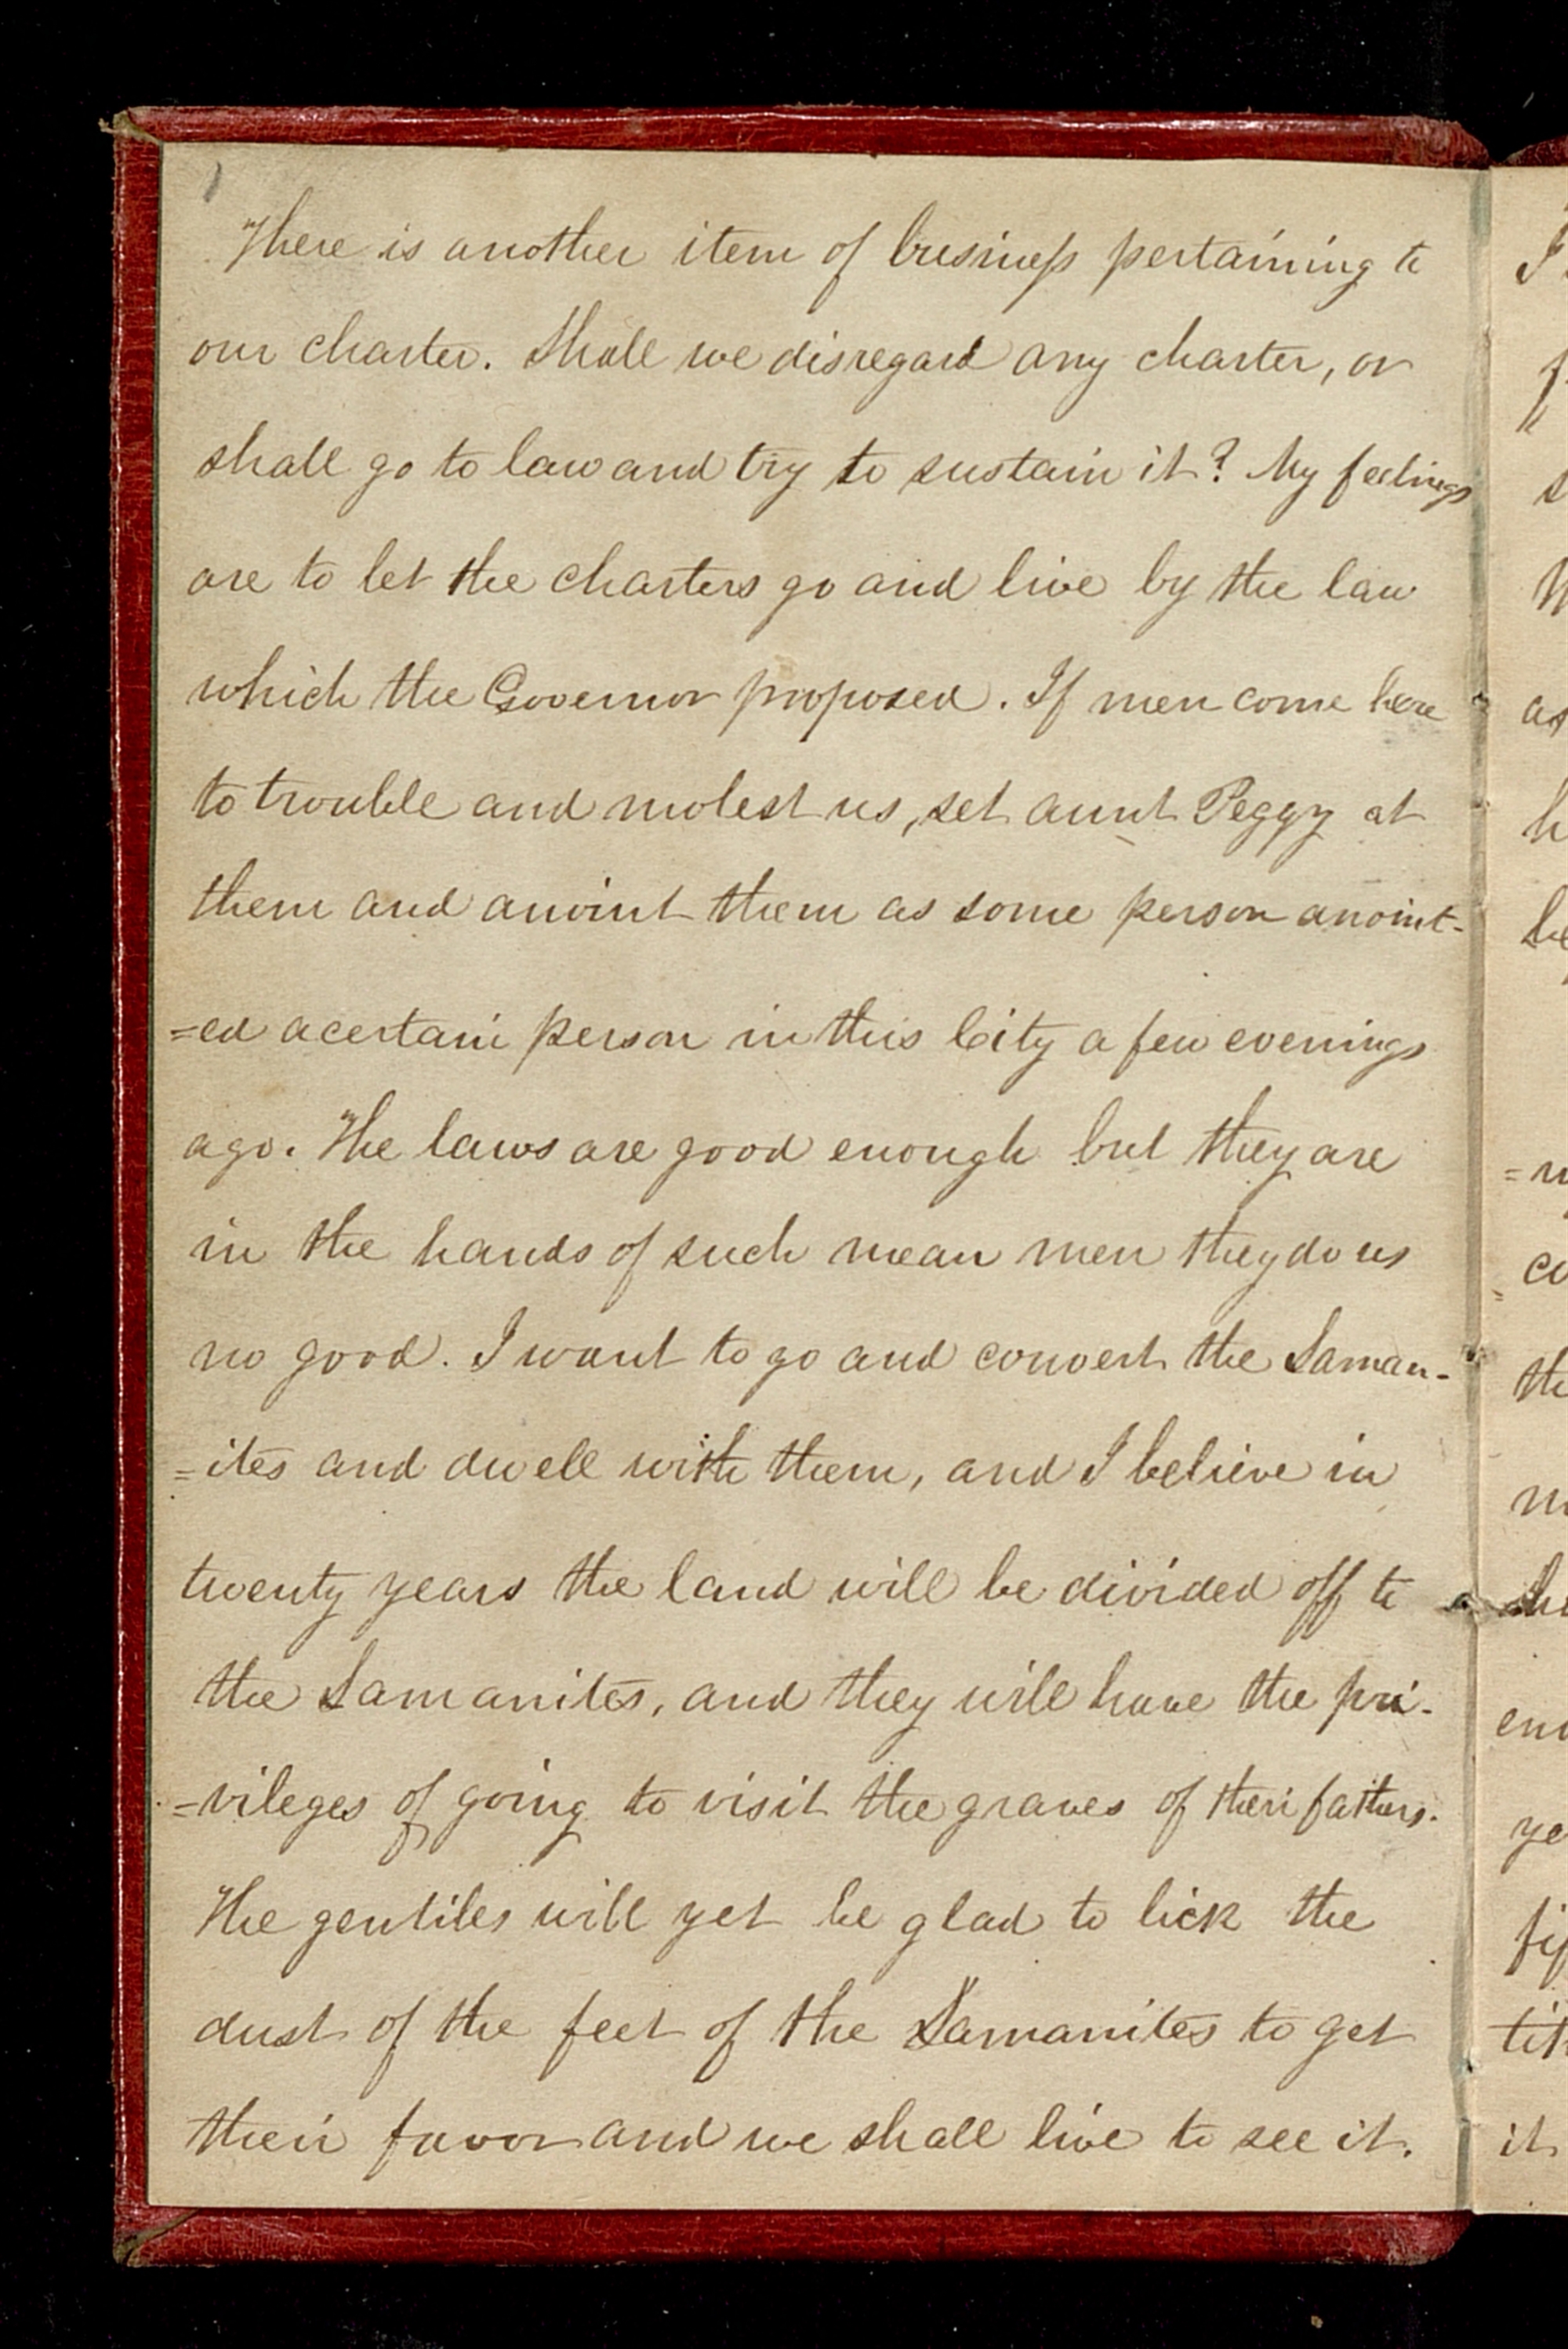 1
There is another item of business pertaining to
our charter. Shall we disregard any charter, or
shall go to law and try to sustain it? My feelings
are to let the charters go and live by the law
which the Governor proposed. If men come here
to trouble and molest us, set aunt Peggy at
them and anoint them as some person anoint-
=ed a certain person in this City a few evenings
ago. The laws are good enough but they are
in the hands of such mean men they do us
no good. I want to go and convert the Laman-
=ites and dwell with them, and I believe in
twenty years the land will be divided off to
the Lamanites, and they will have the pri-
=vileges of going to visit the graves of their fathers.
The gentiles will yet be glad to lick the
dust of the feet of the Lamanites to get
their favor and we shall live to see it.